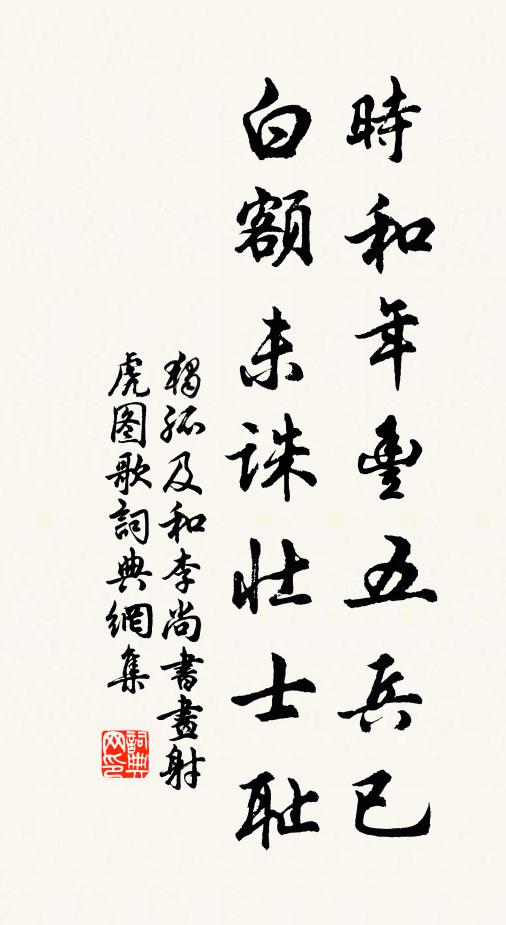 時和年豐五兵已
白額未誅壯士恥
獨孤及和李尚書畫射
虎图歌詞典網集
詞典
网印